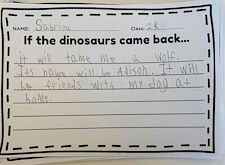 NAME: Sabrina Class: 2K
If the dinosaurs came back...
It will tame me a wolf.
Its name will be Adison. It will
be friends with my dog at
home.